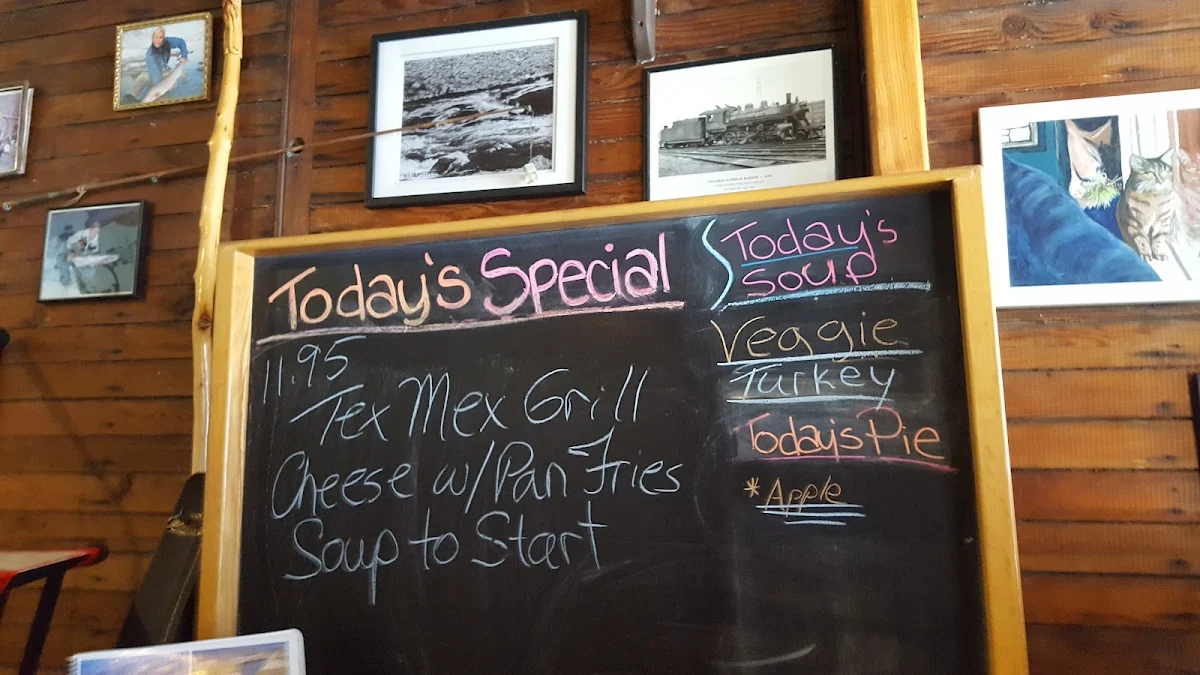 Today's Special
11.95
Tex Mex Grill
Cheese w/Pan Fries
Soup to Start
Today's
Soup
Veggie
Turkey
Today's Pie
*Apple